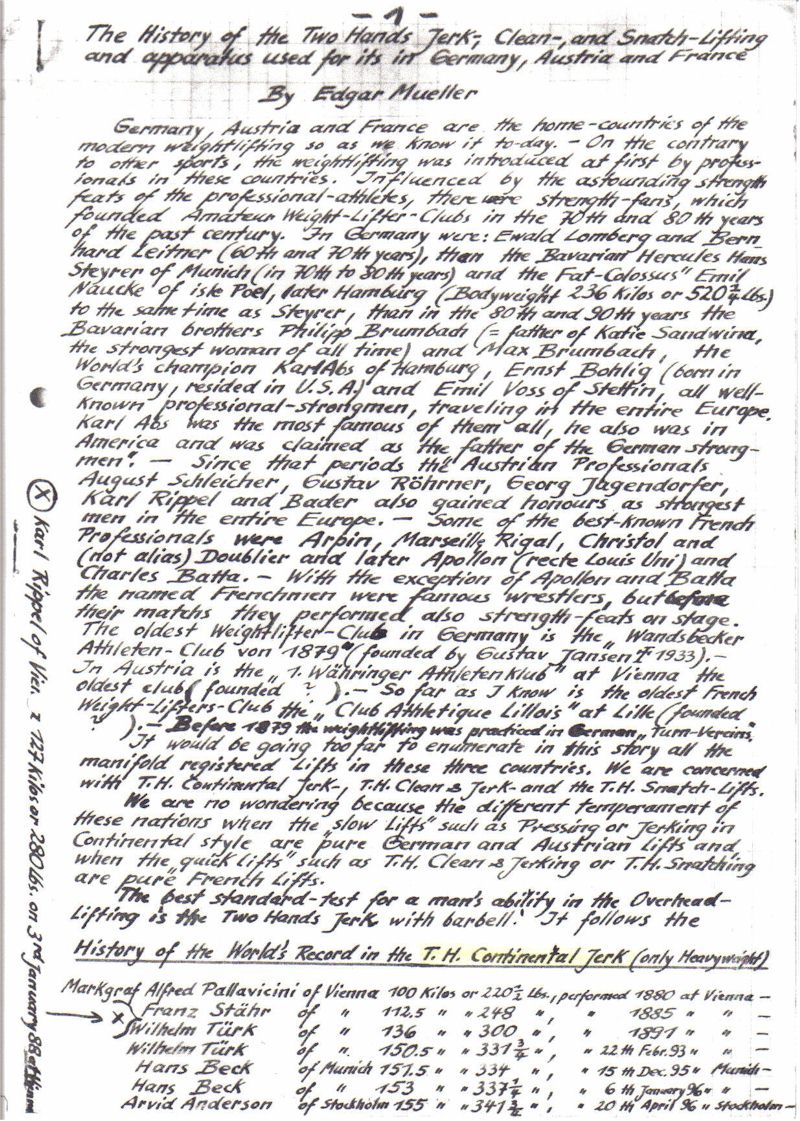 - 1 -
The History of the Two Hands Jerk-, Clean-, and Snatch-Lifting
and apparatus used for its in Germany, Austria and France
By Edgar Mueller
Germany, Austria and France are the home-countries of the
modern weightlifting so as we know it to-day. - On the contrary
to other sports, the weightlifting was introduced at first by profess-
ionals in these countries. Influenced by the astounding strength
feats of the professional-athletes, there were strength-fans, which
founded Amateur Weight-Lifter-Clubs in the 70th and 80th years
of the past century. In Germany were: Ewald Lomberg and Bern
hard Leitner (60th and 70th years), then the Bavarian Hercules Hans
Steyrer of Munich (in 70th to 80th years) and the Fat-Colossus" Emil
Naucke of isle Poel, later Hamburg (Bodyweight 236 Kilos or 520 1/4 Lbs.)
to the same time as Steyrer, than in the 80th and 90th years the
Bavarian brothers Philipp Brumbach (= father of Katie Sandwina,
the strongest woman of all time) and Max Brumbach, the
World's champion Karl Abs of Hamburg, Ernst Bohlig (born in
Germany, resided in U.S.A.) and Emil Voss of Stettin, all well-
known professional-strongmen, traveling in the entire Europe.
Karl Abs was the most famous of them all, he also was in
America and was claimed as the father of the German strong-
men". - Since that periods the Austrian Professionals
August Schleicher, Gustav Röhrner, Georg Jagendorfer,
Karl Rippel and Bader also gained honours as strongest
men in the entire Europe. - Some of the best-known French
Professionals were Arpin, Marseille, Rigal, Christol and
(not alias) Doublier and later Apollon (recte Louis Uni) and
Charles Batta. - With the exception of Apollon and Batta
the named Frenchmen were famous wrestlers, but before
their matchs they performed also strength-feats on stage.
The oldest Weightlifter-Club in Germany is the „Wandsbecker
Athleten-Club von 1879" (founded by Gustav Jansen † 1933). -
In Austria is the „1. Währinger Athletenklub" at Vienna the
oldest club (founded ? ). - So far as I know is the oldest French
Weight-Lifters-Club the „Club Athletique Lillois" at Lille (founded
? ). - Before 1879 the weightlifting was practiced in German „Turn-Vereins."
It would be going too far to enumerate in this story all the
manifold registered Lifts in these three countries. We are concerned
with T.H. Continental Jerk-, T.H. Clean & Jerk- and the T.H. Snatch-Lifts.
We are no wondering because the different temperament of
these nations when the „slow Lifts" such as Pressing or Jerking in
Continental style are „pure German and Austrian Lifts and
when the „quick lifts" such as T.H. Clean & Jerking or T.H. Snatching
are pure" French Lifts.
The best standard-test for a man's ability in the Overhead-
Lifting is the Two Hands Jerk with barbell." It follows the
History of the World's Record in the T.H. Continental Jerk (only Heavyweight)
Markgraf Alfred Pallavicini of Vienna 100 Kilos or 220 1/2 Lbs., performed 1880 at Vienna -
Franz Stähr of " 112.5 " " 248 " , " 1885 " " -
X Wilhelm Türk of " 136 " " 300 " , " 1891 " " -
Wilhelm Türk of " 150.5 " " 331 3/4 " , " 22th Febr. 93 " " -
Hans Beck of Munich 151.5 " " 334 " , " 15th Dec. 95 " Munich -
Hans Beck of " 153 " " 337 1/4 " , " 6th January 96 " " -
Arvid Anderson of Stockholm 155 " " 341 3/4 " , " 20th April 96 " Stockholm -
X Karl Rippel of Vien. 127 Kilos or 280 Lbs. on 3rd January 88 at